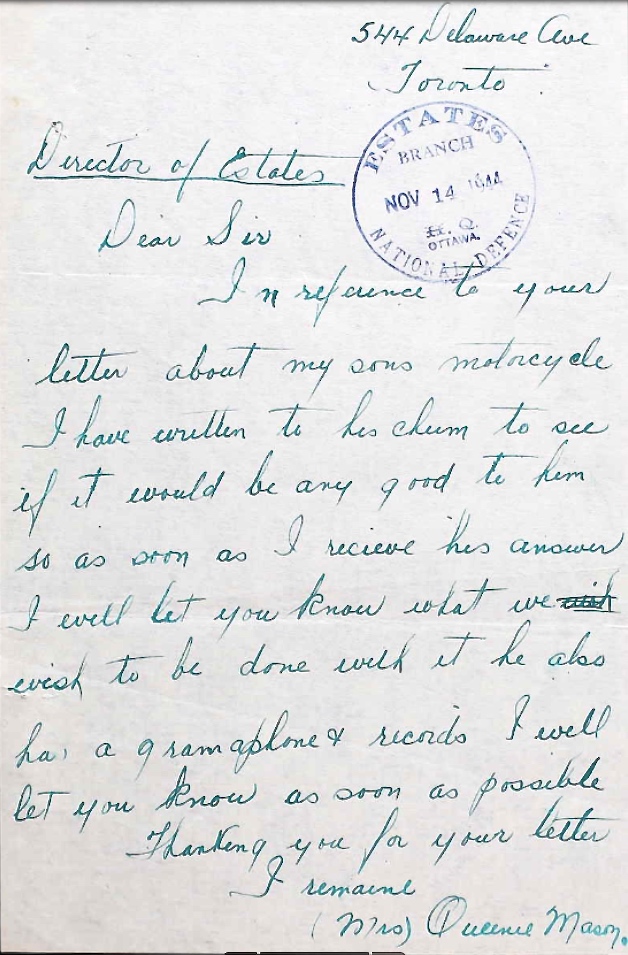 544 Delaware Ave
Toronto
ESTATES
BRANCH
NOV 14 1944
H. Q.
OTTAWA.
NATIONAL DEFENCE
Director of Estates
Dear Sir
In reference to your
letter about my sons motorcycle
I have written to his chum to see
if it would be any good to him
so as soon as I recieve his answer
I will let you know what we wish
wish to be done with it he also
has a gramaphone & records I will
let you know as soon as possible
Thanking you for your letter
I remaine
(Mrs) Queenie Mason.